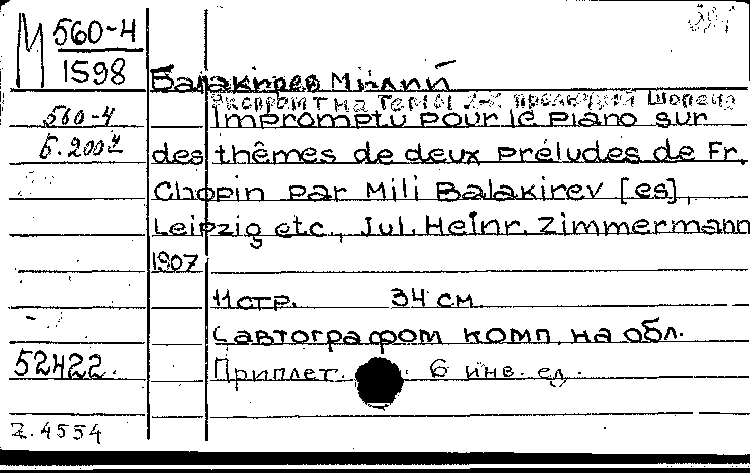 М 560-4
1598
Балакирев Милий
Экспромт на темы 2-х прелюдий Шопена
560-4
Impromptu pour le piano sur
б.2007
des thêmes de deux préludes de Fr.
Chopin par Mili Balakirev [es],
Leipzig etc., Jul. Heinr. Zimmermann
1907
11 стр. 34 см
С автографом комп. на обл.
52422.
Приплет. 6 инв. ед.
Z.4554